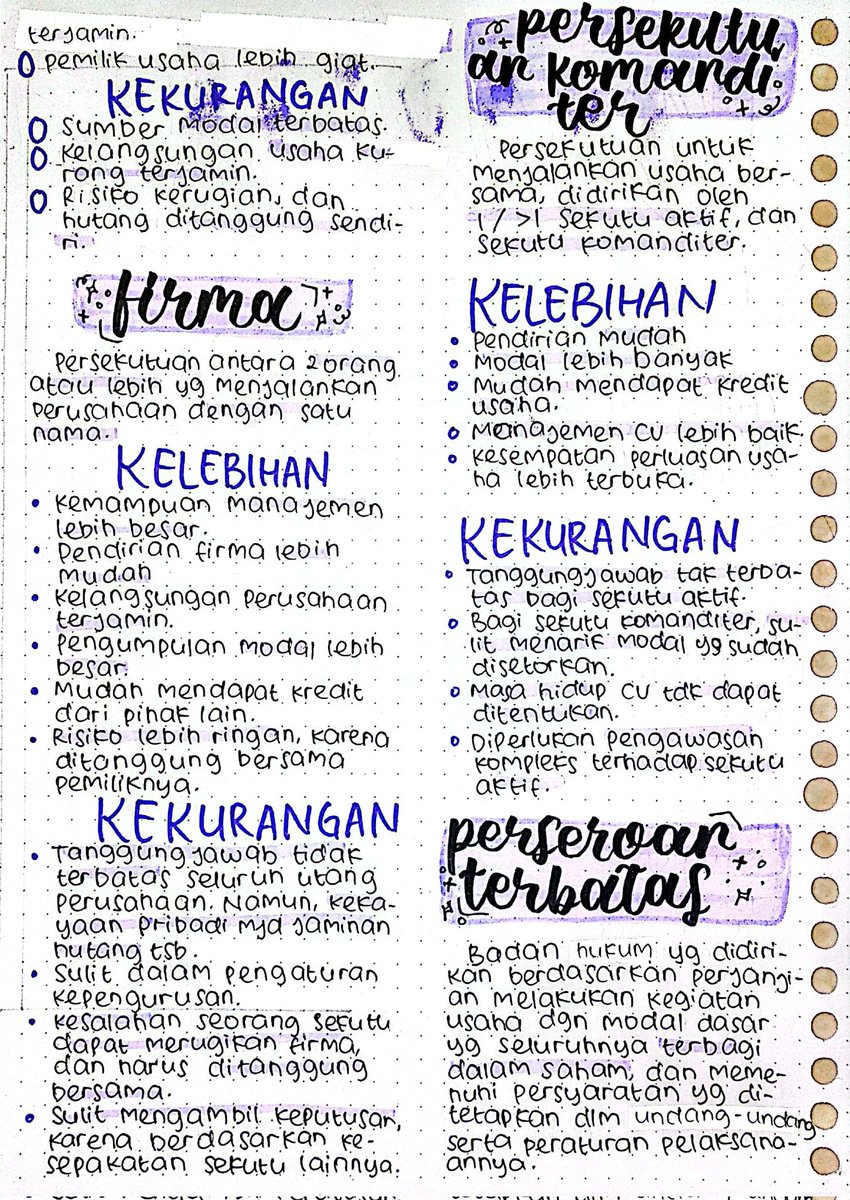 terjamin.
pemilik usaha lebih giat.
KEKURANGAN
Sumber modal terbatas.
Kelangsungan usaha ku-
rang terjamin.
Risiko kerugian, dan
hutang ditanggung sendi-
ri.
firma
Persekutuan antara 2 orang
atau lebih yg menjalankan
perusahaan dengan satu
nama.
KELEBIHAN
Kemampuan manajemen
lebih besar.
Pendirian firma lebih
mudah
Kelangsungan perusahaan
terjamin.
Pengumpulan modal lebih
besar.
Mudah mendapat kredit
dari pihak lain.
Risiko lebih ringan, karena
ditanggung bersama
pemiliknya.
KEKURANGAN
Tanggungjawab tidak
terbatas seluruh utang
perusahaan. Namun, keka-
yaan pribadi mjd jaminan
hutang tsb.
Sulit dalam pengaturan
kepengurusan.
Kesalahan seorang sekutu
dapat merugikan firma,
dan harus ditanggung
bersama.
Sulit mengambil keputusan,
karena berdasarkan ke-
sepakatan sekutu lainnya.
persekutu
an komandi
ter
Persekutuan untuk
menjalankan usaha ber-
sama, didirikan oleh
1 / >1 sekutu aktif, dan
sekutu komanditer.
KELEBIHAN
Pendirian mudah
Modal lebih banyak
Mudah mendapat kredit
usaha.
Manajemen CV lebih baik.
Kesempatan perluasan usa-
ha lebih terbuka.
KEKURANGAN
Tanggungjawab tak terba-
tas bagi sekutu aktif.
Bagi sekutu komanditer, su-
lit menarik modal yg sudah
disetorkan.
Masa hidup CV tdk dapat
ditentukan.
Diperlukan pengawasan
kompleks terhadap sekutu
aktif.
perseroan
terbatas
Badan hukum yg didiri-
kan berdasarkan perjanji-
an melakukan kegiatan
usaha dgn modal dasar
yg seluruhnya terbagi
dalam saham, dan meme-
nuhi persyaratan yg di-
tetapkan dlm undang-undang
serta peraturan pelaksana-
annya.